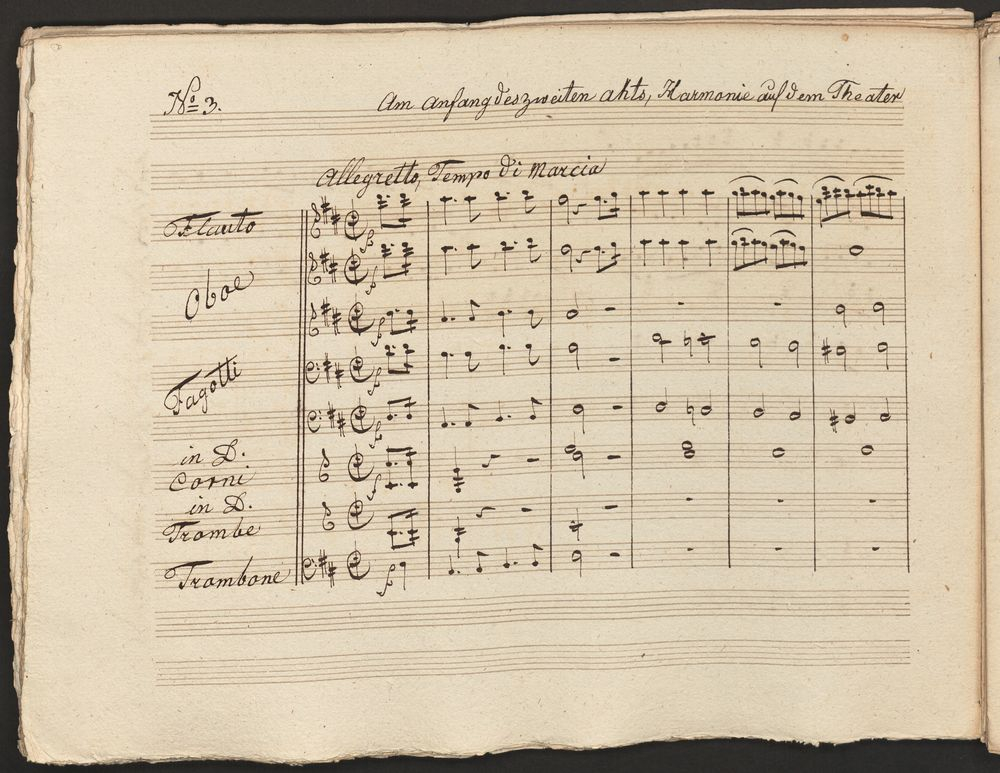 No 3.
Am anfang des zweiten akts, Harmonie auf dem Theater
Allegretto, Tempo di Marcia
Flauto
Oboe
Fagotti
in D.
Corni
in D.
Trombe
Trombone